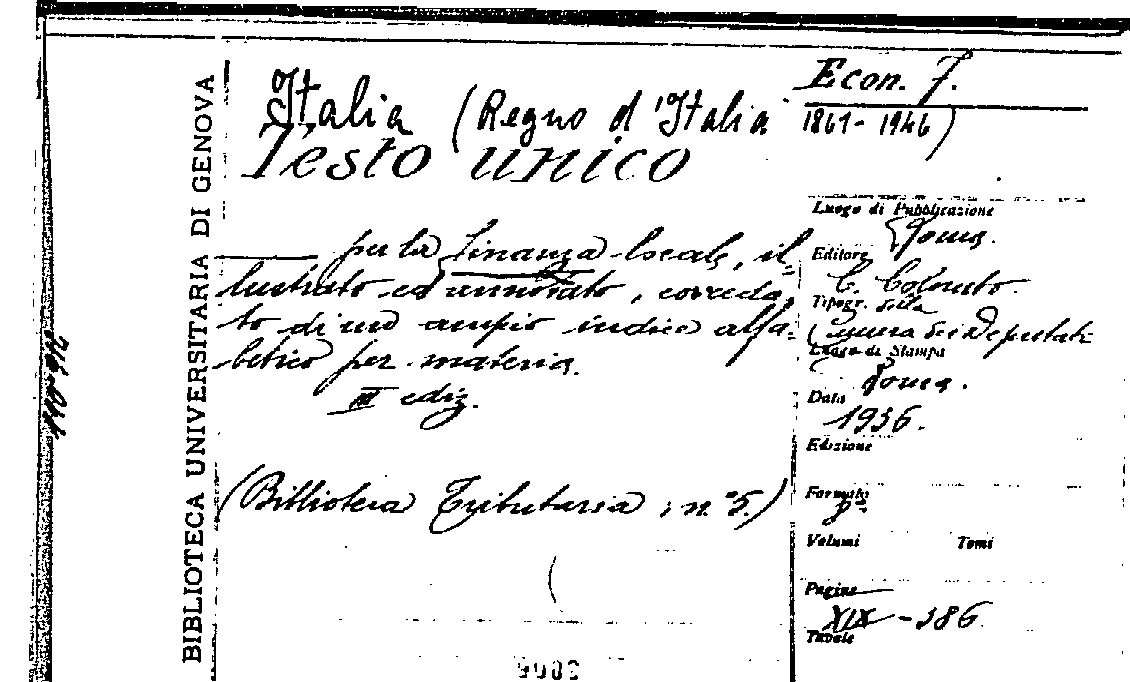 Econ. 7.
Italia (Regno d'Italia 1861-1946)
Testo unico
per la Finanza locale, il=
lustrato ed annotato, correda=
to di un ampio indice alfa=
betico per materia.
III ediz.
(Biblioteca Tributaria, n.° 5.)
BIBLIOTECA UNIVERSITARIA DI GENOVA
Luogo di Pubblicazione
Roma.
Editore
C. Colombo.
Tipogr. della
Camera dei Deputati
Luogo di Stampa
Roma.
Data
1936.
Edizione
Formato
8°
Volumi Tomi
Pagine
XIX-386.
Tavole